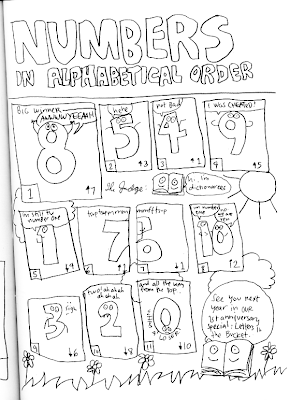 NUMBERS
IN ALPHABETICAL ORDER
BIG WINNER
AWWWWYEEAAH
haha
not Bad
I was CHEATED!
8
5
4
9
1
↑7
2
↑3
3
↑1
4
↑5
The Judge:
Hi, I'm
dictionareez
I'm still the
number one
1
7
6
I'm number
one
10
5
↓4
↑1
↓2
3
2
two! ah ah ah
ah ah
and all the way
from the top
0
loser
9
↓6
10
↓8
11
↓10
See you next
year in our
1st anniversary
special: Letters in
the Bucket.